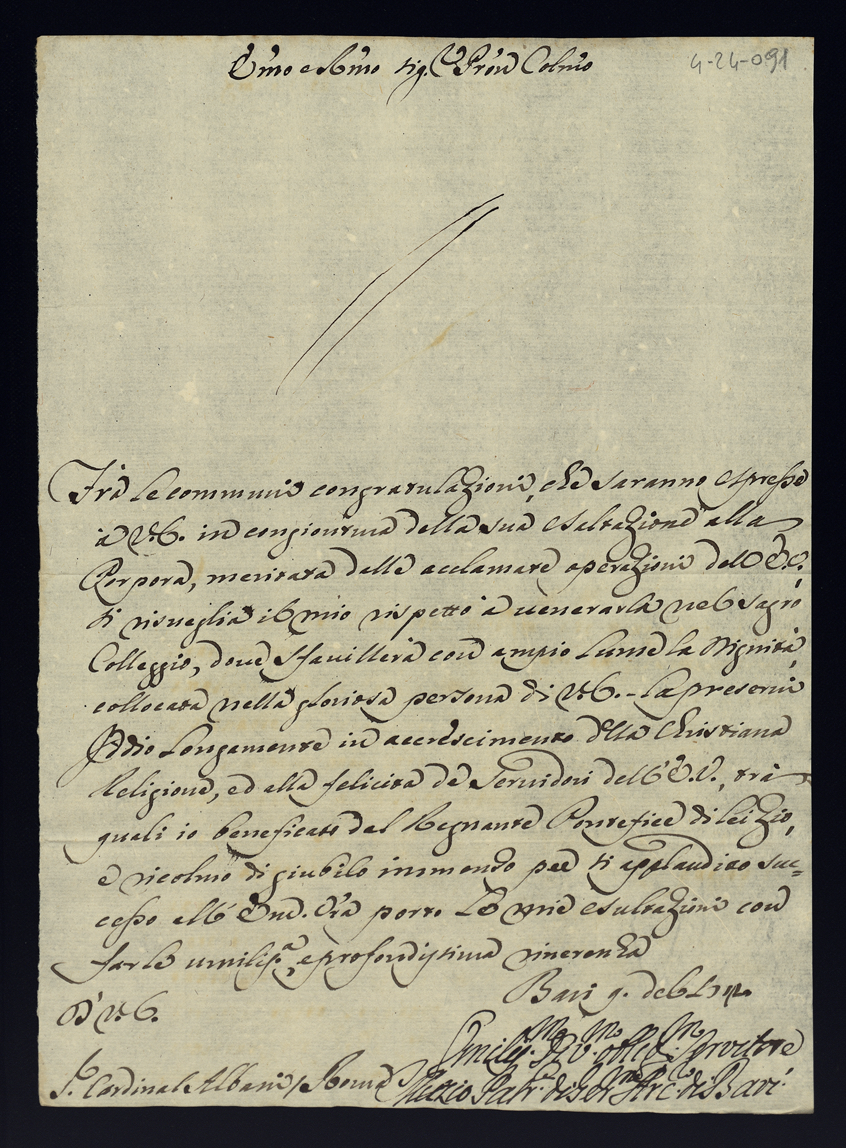 Em̃o e Rm̃o Sig.r Prõn Colmo
4-24-091
Frà le communi congratulazioni, che saranno espresse
à V.E. in congiontura della sua esaltazione alla
Porpora, meritata dalle acclamate operazioni dell'E.V.
si risueglia il mio rispetto à uenerarla nel Sagro
Colleggio, doue sfauillerà con ampio lume la Dignità,
collocata nella gloriosa persona di V.E. - La preserui
Iddio longamente in accrescimento della Christiana
Religione, ed alla felicità de Seruidori dell'E.V., trà
quali io beneficato dal Regnante Pontefice di lei Zio,
e ricolmo di giubilo immenso per sì applaudito suc=
cesso all'Em.za V'ra porto le mie esultazioni con
farle umiliss.a, e profondissima riuerenza
Bari 9. del
D' V.E.
Umiliss.mo Div.mo Obblig.mo Servitore
S.r Cardinal Albani / Roma
Muzio Arc.o di Bari